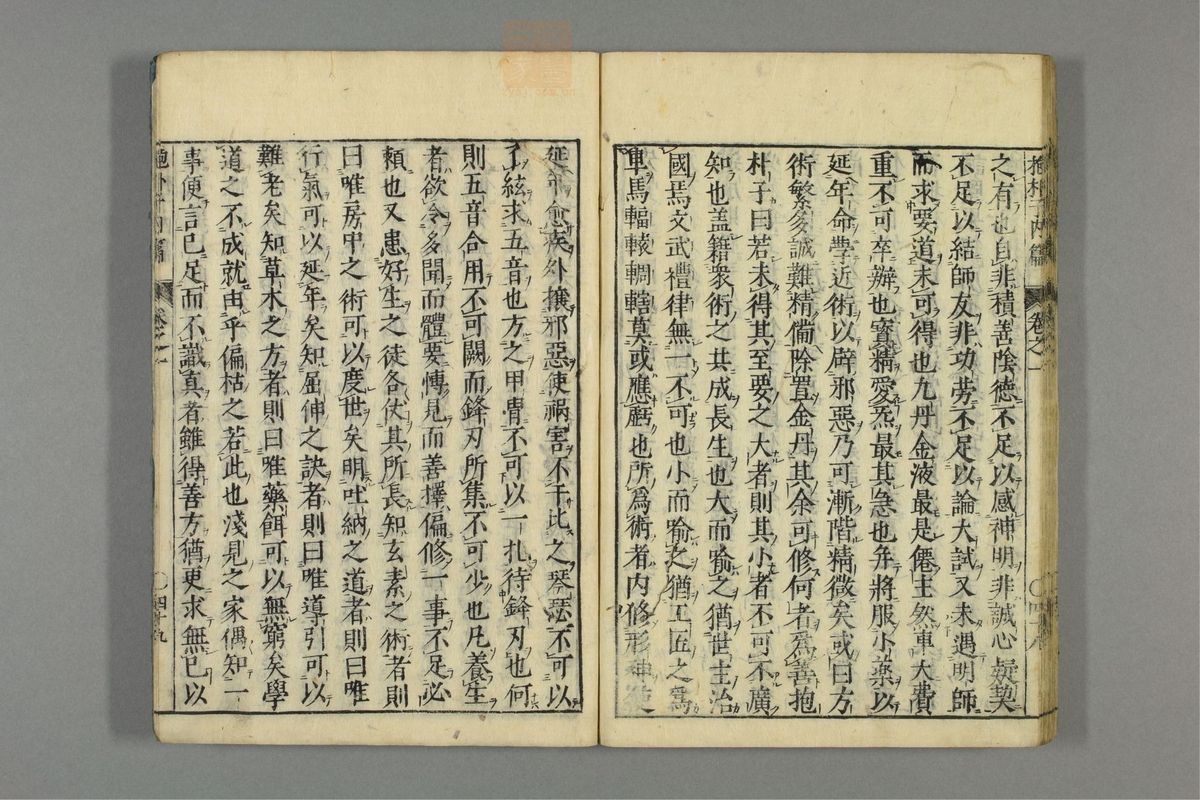 抱朴子内篇　卷之一
之有也自非積善陰德不足以感神明非誠心疑契
不足以結師友非功勞不足以論大試又未遇明師
而求要道未可得也九丹金液最是僊主然車大費
重不可卒辦也寶精愛炁最其急也并將服小藥以
延年命學近術以辟邪惡乃可漸階精微矣或曰方
術繁多誠難精備除置金丹其余可修何者爲善抱
朴子曰若未得其至要之大者則其小者不可不廣
知也盖籍衆術之共成長生也大而喻之猶世主治
國焉文武禮律無一不可也小而喻之猶工匠之爲
車馬輻轅輞轄莫或應虧也所爲術者内修形神使
延命愈疾外攘邪惡使禍害不干比之琴瑟不可以
孑絃求五音也方之甲冑不可以一札待鋒刃也何
則五音合用不可闕而鋒刃所集不可少也凡養生
者欲令多聞而體要博見而善擇偏修一事不足必
頼也又患好生之徒各仗其所長知玄素之術者則
曰唯房中之術可以度世矣明吐納之道者則曰唯
行氣可以延年矣知屈伸之訣者則曰唯導引可以
難老矣知草木之方者則曰唯藥餌可以無窮矣學
道之不成就由乎偏枯之若此也淺見之家偶知一
事便言已足而不識真者雖得善方猶更求無已以
抱朴子内篇　卷之一　四十九